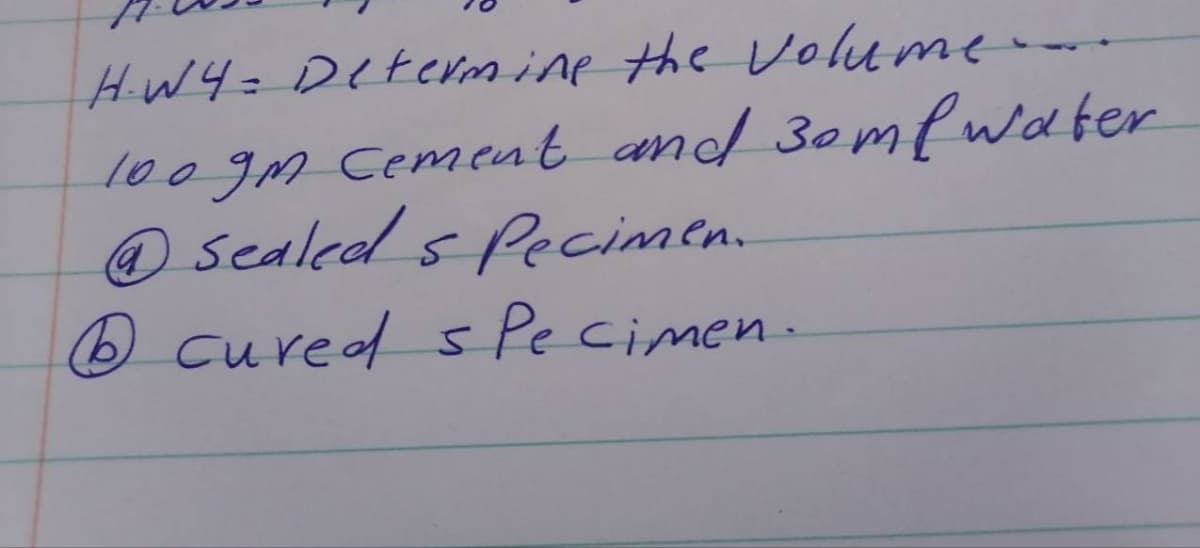 H.W4= Determine the Volume ....
100 gm Cement and 30 ml water
ⓐ Sealed specimen.
ⓑ cured specimen.